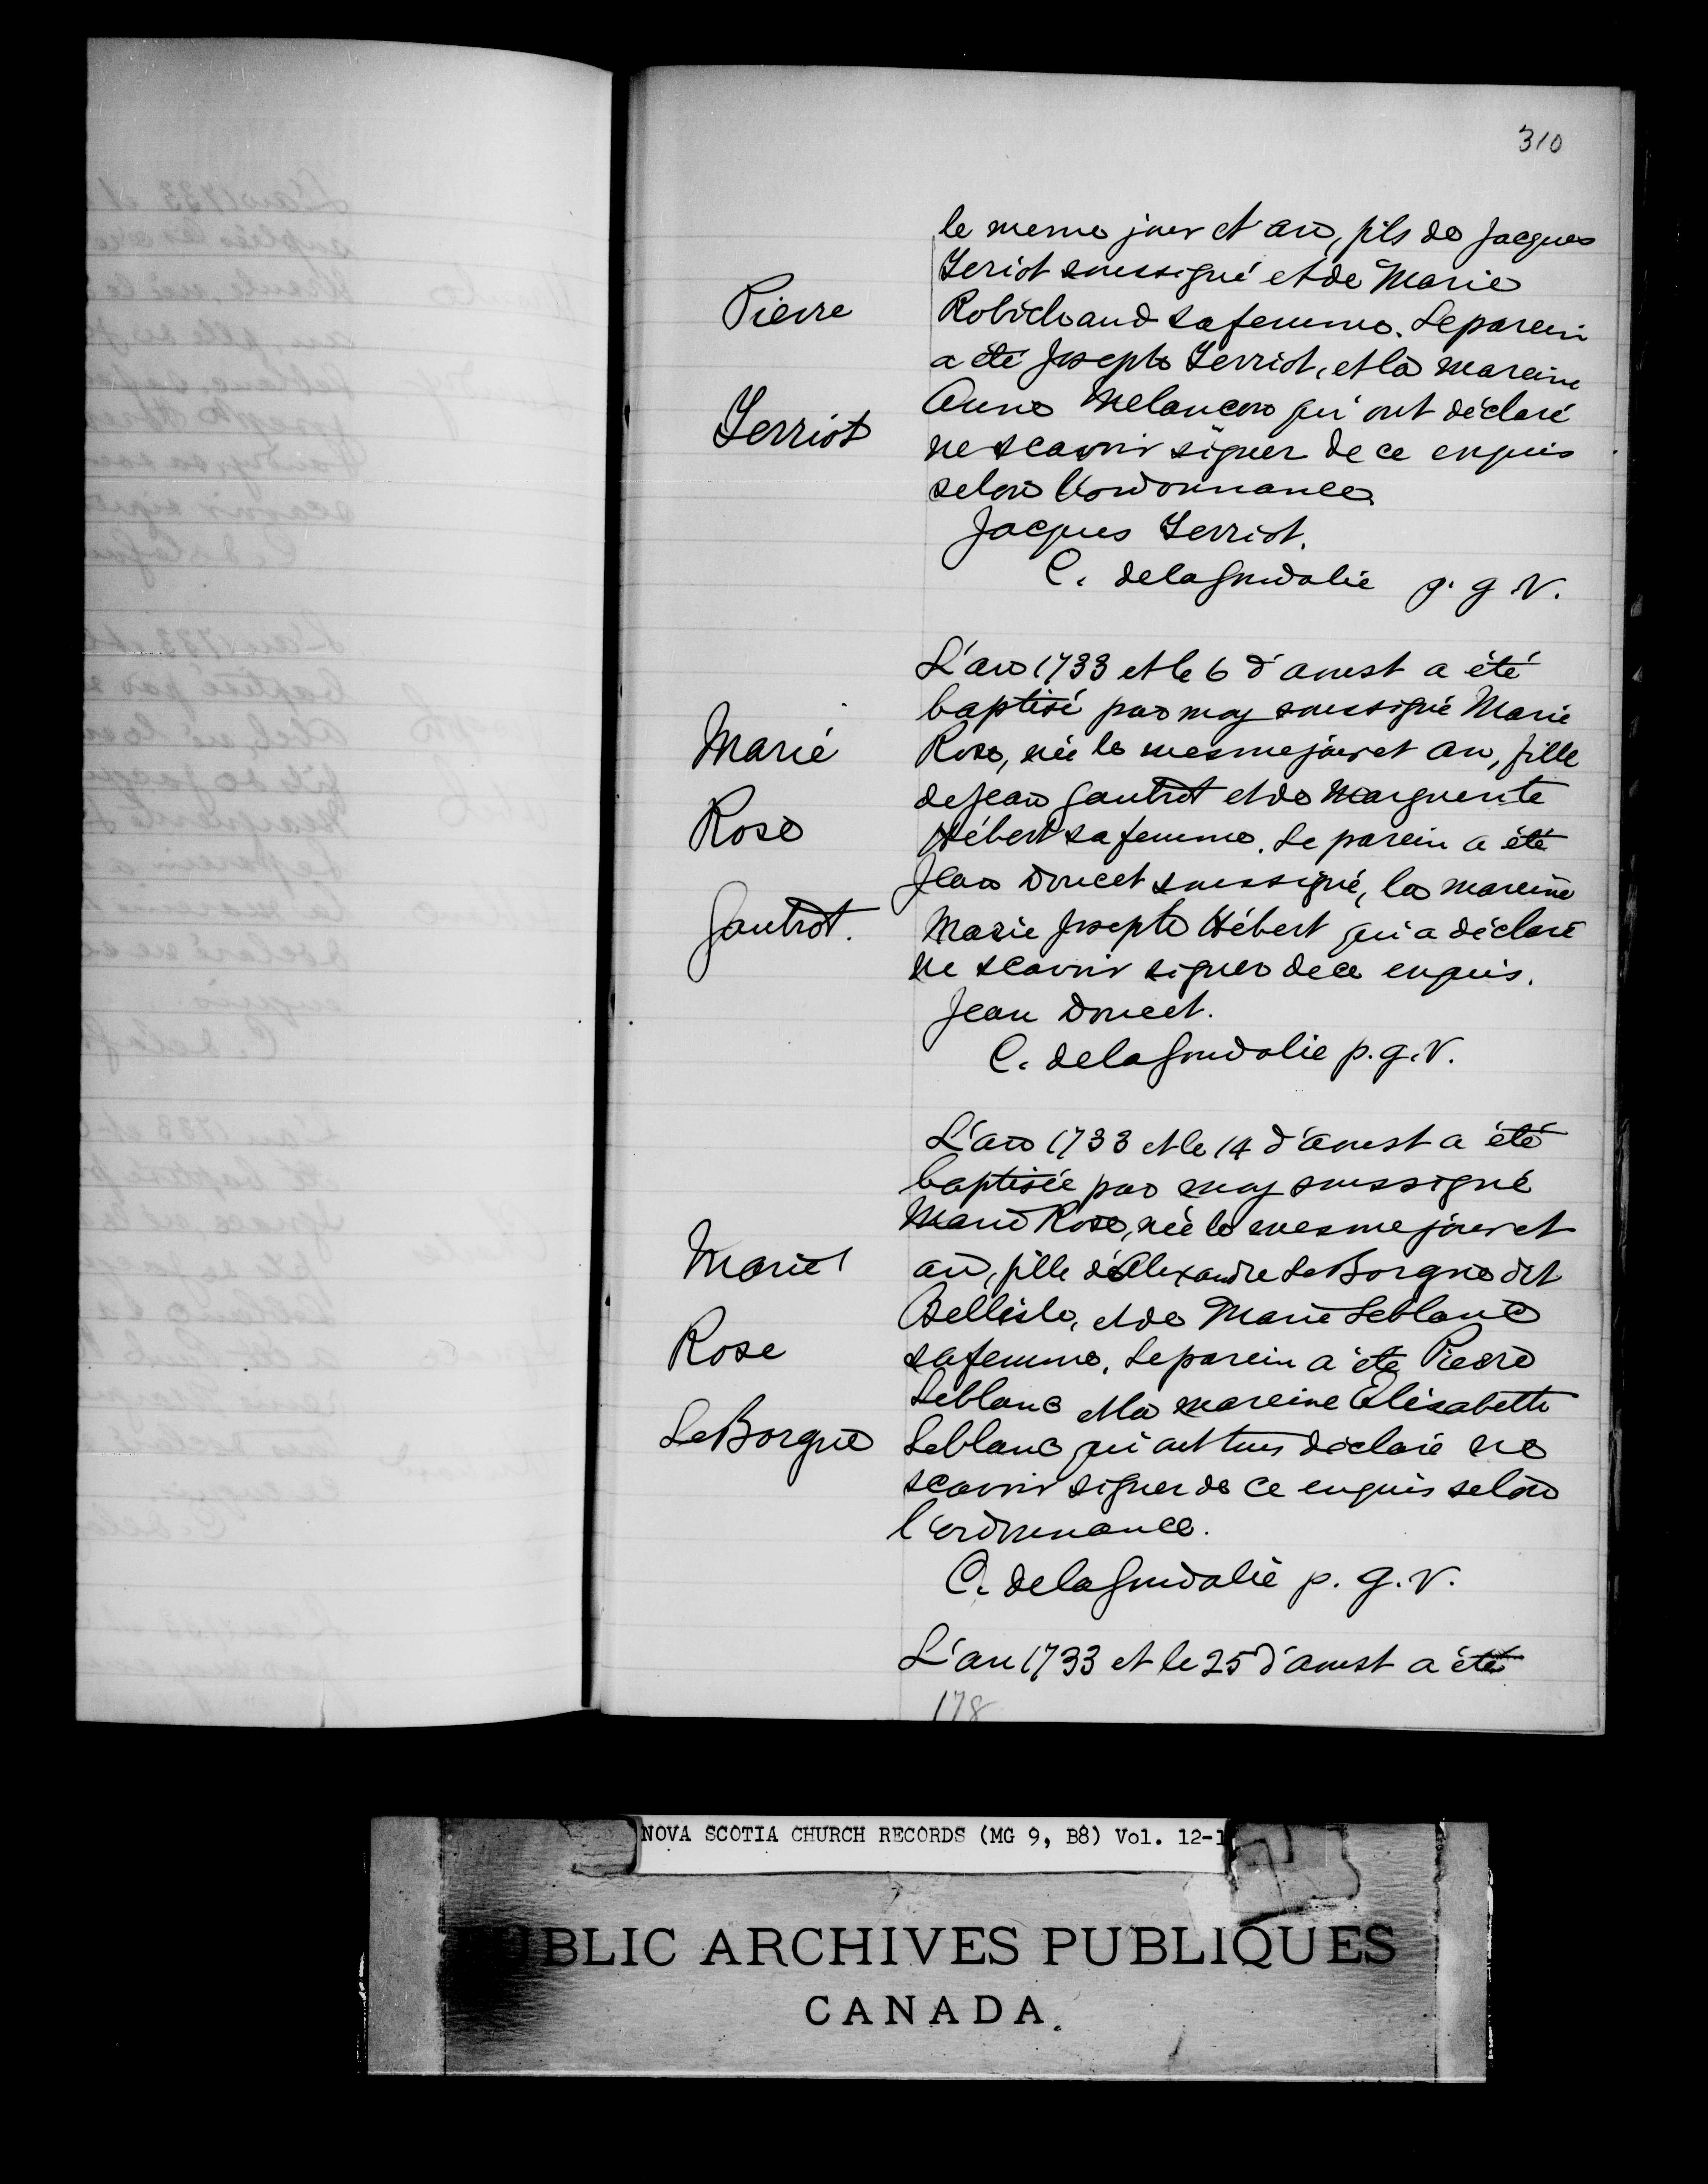 310
le meme jour et an, fils de Jacques
Teriot soussigné et de Marie
Pierre
Robichaud sa femme. Le parein
a été Joseph Terriot, et la mareine
Terriot
Anne Melancon qui ont déclaré
ne scavoir signer de ce enquis
selon l'ordonnance
Jacques Terriot.
C. delaGoudalie p. g. V.
L'an 1733 et le 6 d'aoust a été
baptisé par moy soussigné Marie
Marie
Rose, née le mesme jour et an, fille
de Jean Gautrot et de Marguerite
Rose
Hébert sa femme. Le parein a été
Jean Doucet soussigné, la mareine
Gautrot.
Marie Josepte Hébert qui a déclaré
ne scavoir signer de ce enquis.
Jean Doucet.
C. delaGoudalie p. g. V.
L'an 1733 et le 14 d'aoust a été
baptisée par moy soussigné
Marie Rose, née le mesme jour et
Marie
an, fille d'Alexandre LeBorgne dit
Bellisle, et de Marie Leblanc
Rose
sa femme. Le parein a été Pierre
Leblanc et la mareine Elisabeth
LeBorgne
Leblanc qui ont tous déclaré ne
scavoir signer de ce enquis selon
l'ordonnance.
C. delaGoudalie p. g. V.
L'an 1733 et le 25 d'aoust a été
178
NOVA SCOTIA CHURCH RECORDS (MG 9, B8) Vol. 12-1
PUBLIC ARCHIVES PUBLIQUES
CANADA.